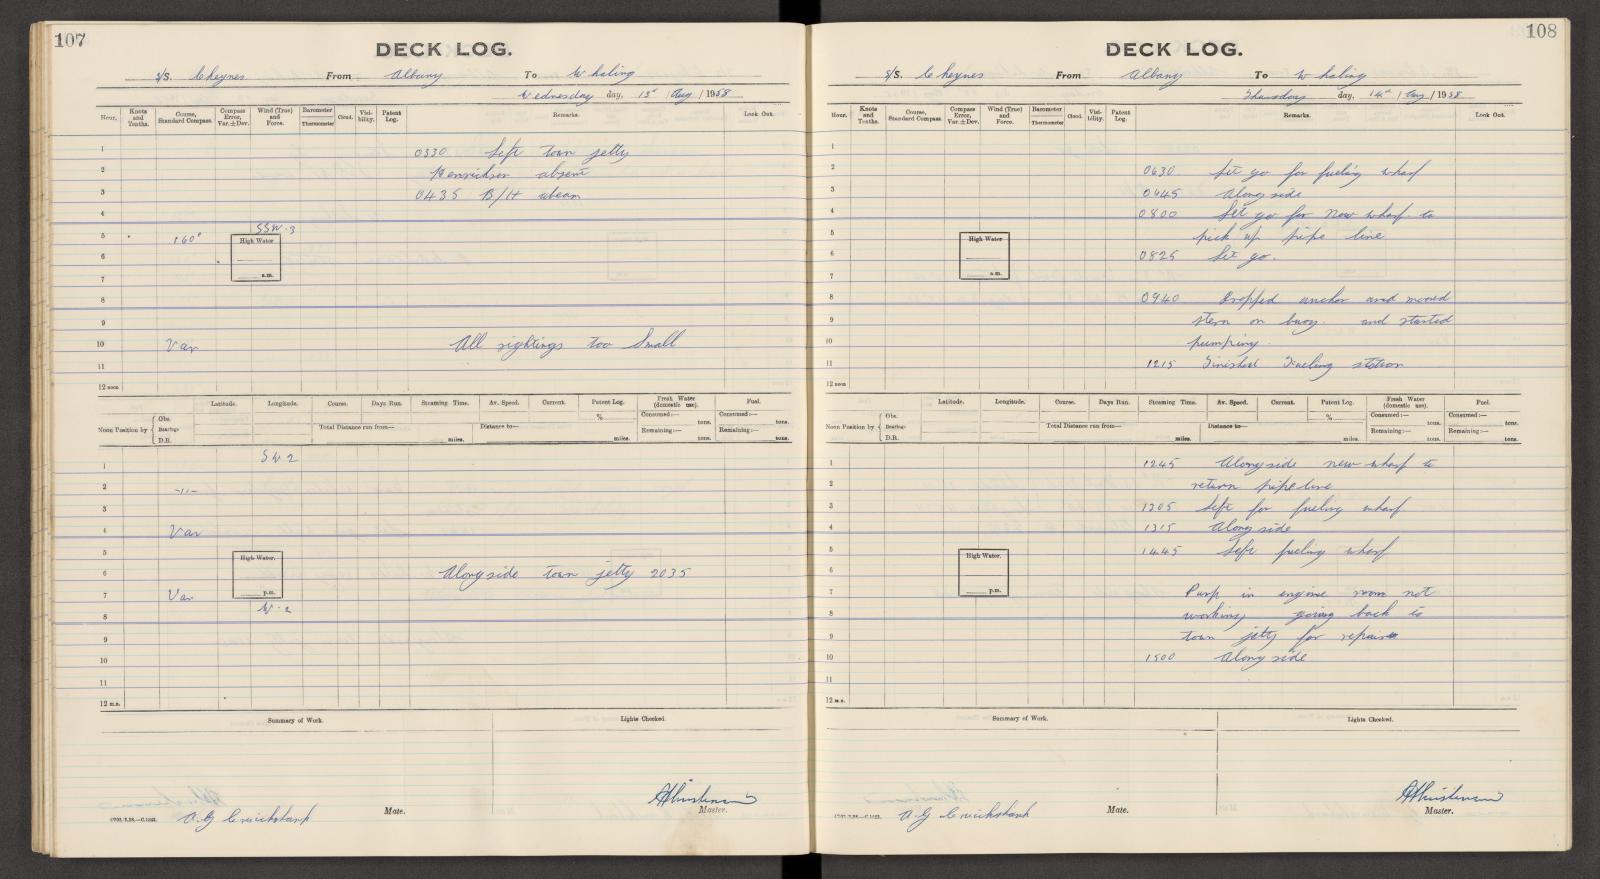 107
DECK LOG.
S/S. Cheynes From Albany To Whaling
Wednesday day, 13th / Aug / 1958
Hour. Knots and Tenths. Course, Standard Compass. Compass Error, Var. ± Dev. Wind (True) and Force. Barometer Thermometer Cloud. Visibility. Patent Log. Remarks. Look Out.
1 0330 Left town jetty
2 Henriksen absent
3 0435 B/H abeam
4
5 160° SSW·3
High Water
6
7 a.m.
8
9
10 Var All sightings too Small
11
12 noon
Latitude. Longitude. Course. Days Run. Steaming Time. Av. Speed. Current. Patent Log. Fresh Water (domestic use). Fuel.
Noon Position by Obs. Bearings D.R. Total Distance run from— miles. Distance to— miles. % Consumed:— tons. Remaining:— tons. Consumed:— tons. Remaining:— tons.
1 SW 2
2 -11-
3
4 Var
5 High Water.
6 Alongside town jetty 2035
7 Var p.m.
8 W·2
9
10
11
12 m.n.
Summary of Work. Lights Checked.
A.G Cruickshank Mate. Master.
108
DECK LOG.
S/S. Cheynes From Albany To Whaling
Thursday day, 14th / Aug / 1958
Hour. Knots and Tenths. Course, Standard Compass. Compass Error, Var. ± Dev. Wind (True) and Force. Barometer Thermometer Cloud. Visibility. Patent Log. Remarks. Look Out.
1
2 0630 Let go for fueling wharf
3 0645 Alongside
4 0800 Let go for New wharf to
5 pick up pipe line
High Water
6 0825 Let go.
7 a.m.
8 0940 Dropped anchor and moored
9 stern on buoy. and started
10 pumping.
11 1215 Finished Fueling station
12 noon
Latitude. Longitude. Course. Days Run. Steaming Time. Av. Speed. Current. Patent Log. Fresh Water (domestic use). Fuel.
Noon Position by Obs. Bearings D.R. Total Distance run from— miles. Distance to— miles. % Consumed:— tons. Remaining:— tons. Consumed:— tons. Remaining:— tons.
1 1245 Alongside new wharf to
2 return pipe line
3 1305 Left for fueling wharf
4 1315 Alongside
5 1445 Left fueling wharf
High Water.
6
7 p.m. Pump in engine room not
8 working going back to
9 town jetty for repairs
10 1500 Alongside
11
12 m.n.
Summary of Work. Lights Checked.
A.G Cruickshank Mate. Master.